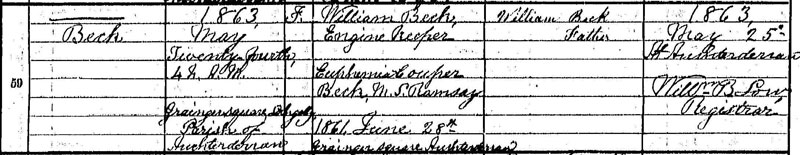 59
Beck
1863,
May
Twenty fourth,
4 h. A.M.
Grainger square Lochgelly
Parish of
Auchterderran
F.
William Beck,
Engine Keeper
Euphemia Couper
Beck, M.S. Ramsay
1861, June 28th
Grainger square Auchterderran
William Beck
Father
1863,
May 25th
At Auchterderran
Willm B. Low
Registrar